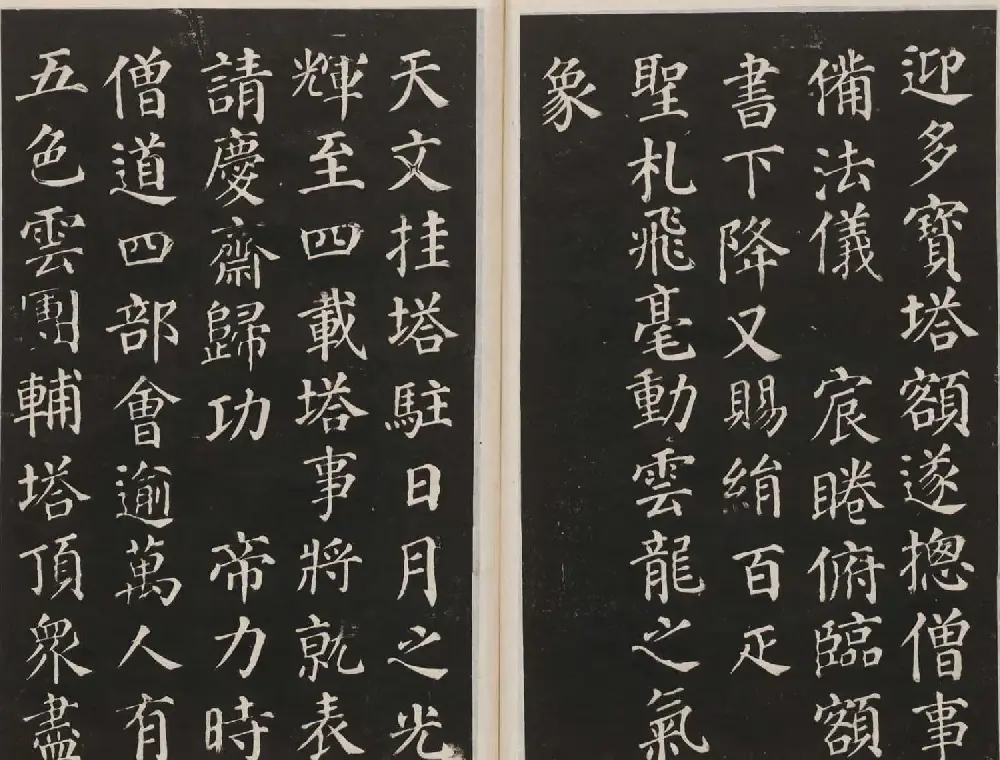 迎多寶塔額遂摠僧事
備法儀 宸睠俯臨額
書下降又賜絹百疋
聖札飛毫動雲龍之氣
象
天文挂塔駐日月之光
輝至四載塔事將就表
請慶齋歸功 帝力時
僧道四部會逾萬人有
五色雲團輔塔頂衆盡